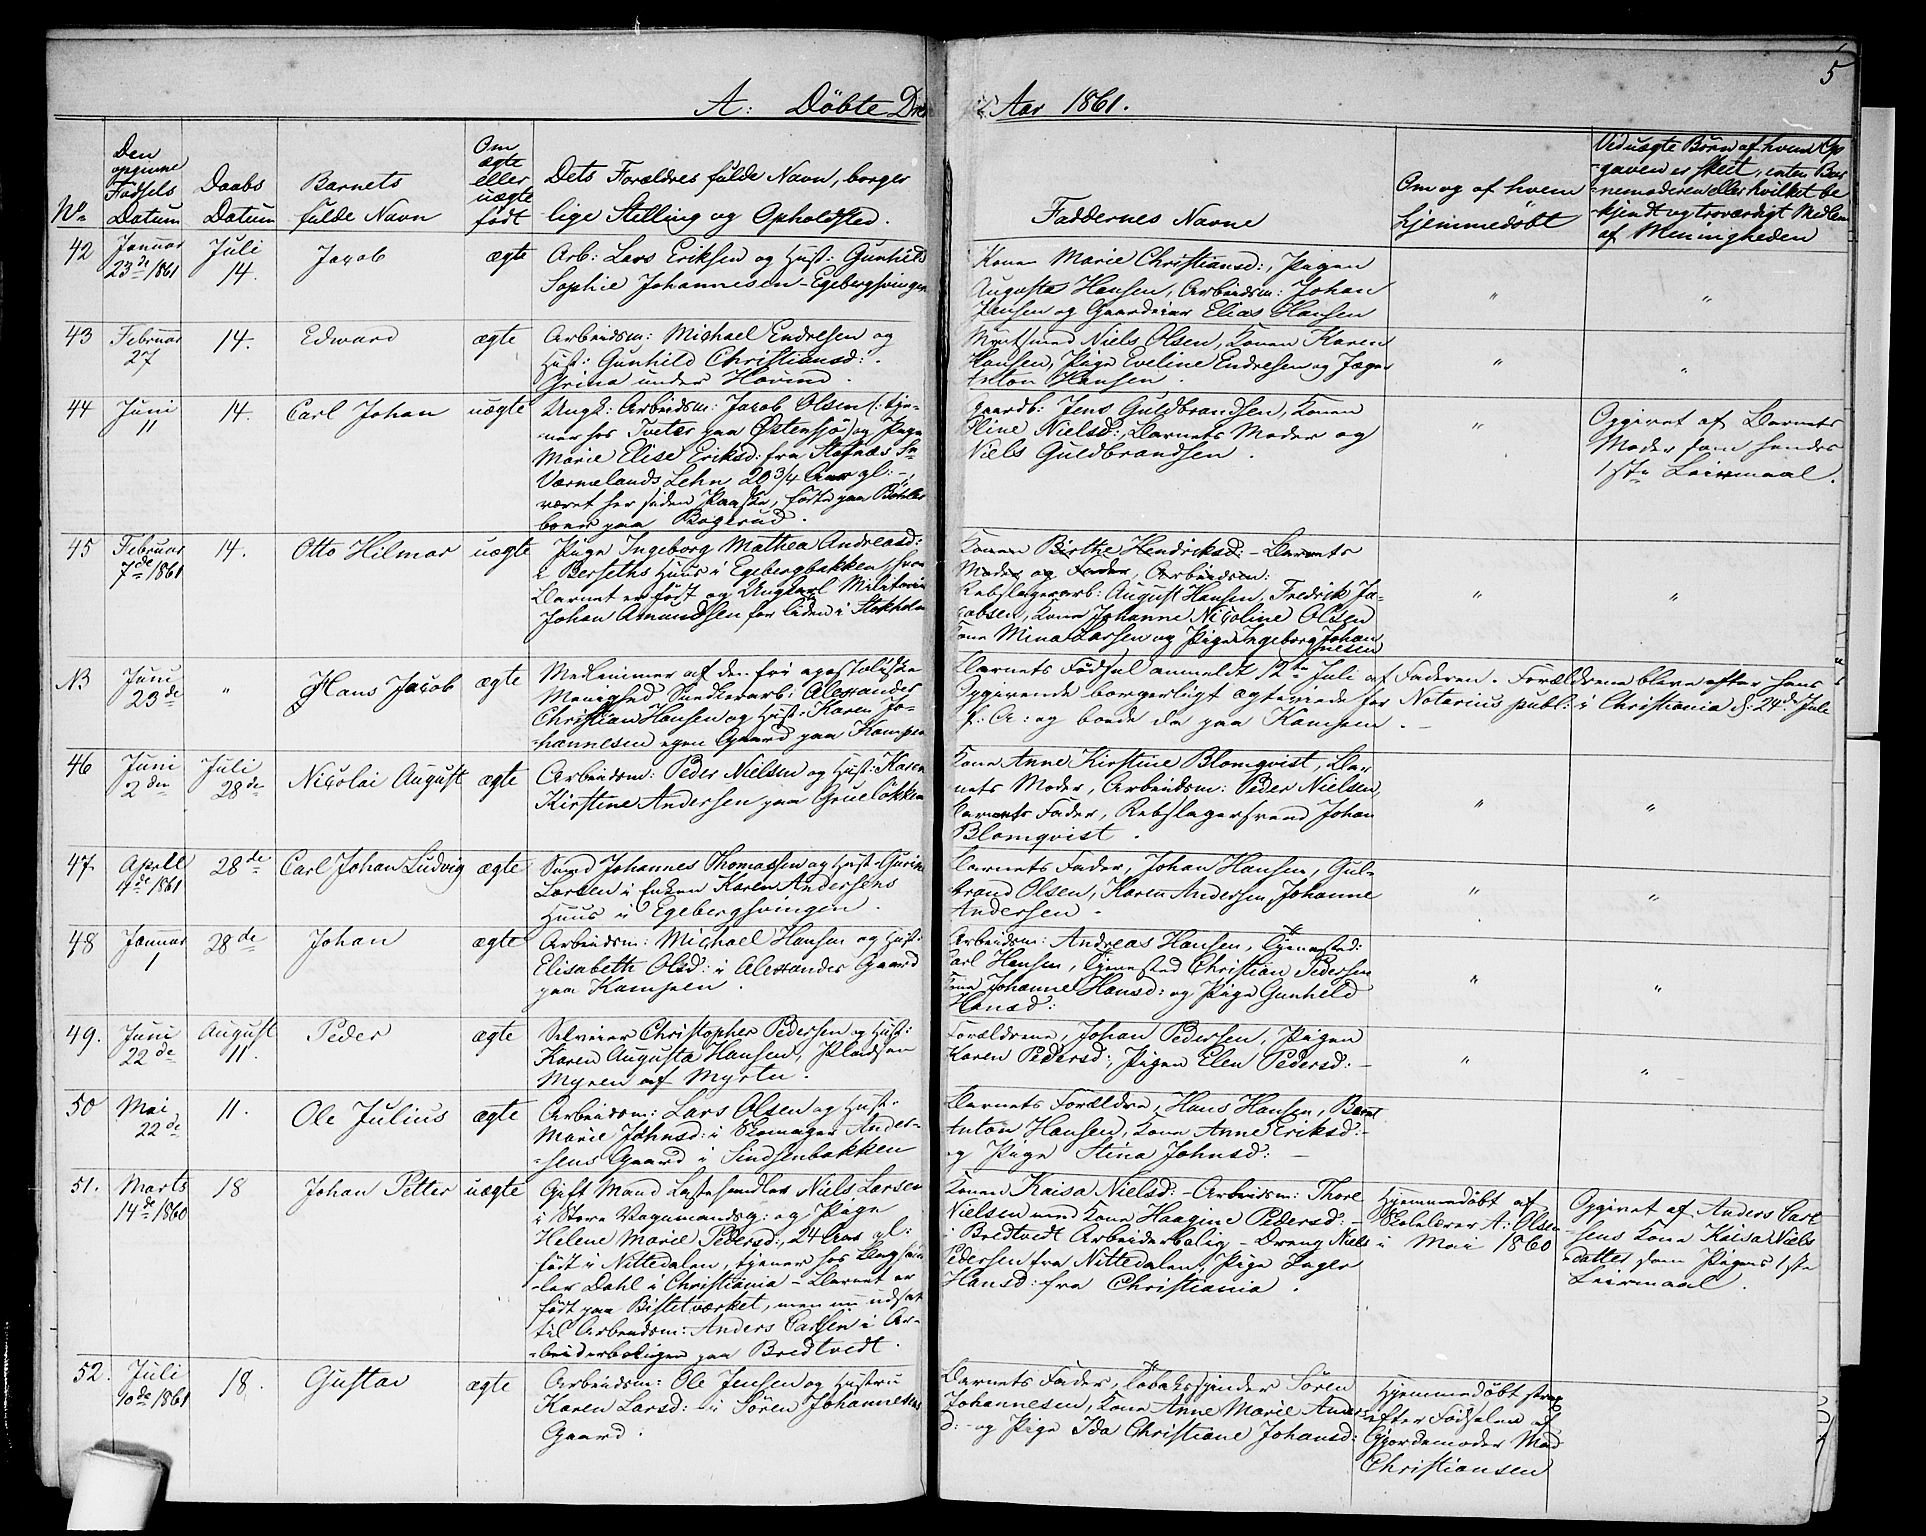 5
A: Döbte Dren
Aar 1861.
No
Den
opgivne
Födsels
Datum
Daabs
Datum
Barnets
fulde Navn
Om
ægte
eller
uægte
födt
Dets Forældres fulde Navn, borger
lige Stilling og Opholdsted.
Faddernes Navne
Om og af hvem
hjemmedöbt
Ved uægte Börn af hvem Op
gaven er skeet, enten Bar
nemoderen eller hvilket be
kjendt og troværdigt Medlem
af Menigheden
42
Januar
23de 1861
Juli
14.
Jacob
ægte
Arb: Lars Eriksen og Hust: Gunhild
Sophie Johannesen - Egebergsvingen
Konen Marie Christiansd:, Pigen
Augusta Hansen, Arbeidsm: Johan
Hansen og Gaardeier Elias Hansen
"
"
43
Februar
27
14.
Edward
ægte
Arbeidsm: Michael Endresen og
Hust: Gunhild Christiansd:.
Grina under Hovind.
Niels Olsen, Konen Karen
Hansen, Pige Eveline Endresen og Jæger
Anton Hansen.
"
"
44
Juni
11
14.
Carl Johan
uægte
Ungk: Arbeidsm: Jacob Olsen (: tje-
ner hos Tveter paa Østensjö) og Pige
Marie Elise Eriksd: fra
Værmelands Lehn 20 3/4 Aar gl: -,
været her siden Paaske, födte paa Böler
boer paa Bogerud.
Gaardb: Jens Guldbrandsen, Konen
Oline Nielsd:, Barnets Moder og
Niels Guldbrandsen.
"
Opgivet af Barnets
Moder som hendes
1ste Leiermaal.
45
Februar
7de 1861
14.
Otto Hilmar
uægte
Pige Ingeborg Mathea Andreasd:
i Berseths Huus i Egebergbakken hvor
Barnet er födt og Ungkarl Militairen
Johan Amundsen for tiden i Stokholm
Konen Birthe Hendriksd: - Barnets
Moder og Fader, Arbeidsm:
Rebslagerarb: August Hansen, Fredrik Ja-
cobsen, Kone Johanne Nicoline Olsen
Kone Mina Larsen og Pige Ingeborg Johan
nesen
"
"
NB
Juni
23de
"
Hans Jacob
ægte
Medlemmer af den fri apostoliske
Menighed Snedkerarb: Alexander
Christian Hansen og Hust: Karen Jo-
hannesen egen Gaard paa Kampen
Barnets Födsel anmeldt 12te Juli af Faderen. Forældrene bleve efter hans
Opgivende borgerligt ægteviede for Notarius publ: i Christiania d: 24de Juli
f: A: og boede da paa Kampen. -
46
Juni
2den
Juli
28de
Nicolai August
ægte
Arbeidsm: Peder Nielsen og Hust: Karen
Kirstine Andersen paa Grüelökken
Kone Anne Kirstine Blomqvist, Bar
nets Moder, Arbeidsm: Peder Nielsen,
Barnets Fader, Rebslagersvend Johan
Blomqvist.
"
"
47.
Aprill
4de 1861
28de
Carl Johan Ludvig
ægte
Smed Johannes Thomassen og Hust: Gurine
Larsen i Enken Karen Andersens
Huus i Egebergsvingen.
Barnets Fader, Johan Hansen, Gul-
brand Olsen, Karen Andersen, Johanne
Andersen -
"
"
48
Januar
1
28de
Johan
ægte
Arbeidsm: Michael Hansen og Hust:
Elisabeth Olsd: i Alexander Gaard
paa Kampen.
Arbeidsm: Andreas Hansen, Tjenested:
Carl Hansen, Tjenested Christian Pedersen
Kone Johanne Hansd: og Pige Gunhild
Hansd:
"
"
49.
Juni
22de
August
11.
Peder
ægte
Selveier Christopher Pedersen og Hust:
Karen Augusta Hansen, Pladsen
Myren af Myrtu.
Forældrene, Johan Pedersen, Pigen
Karen Pedersd:, Pigen Elen Pedersd: -
"
"
50
Mai
22de
11.
Ole Julius
ægte
Arbeidsm: Lars Olsen og Hust:
Marie Johnsd: i Skomager Ander-
sens Gaard i Sindsenbakken
Barnets Forældre, Hans Hansen, Bernt
Anton Hansen, Kone Anne Eriksd: -
og Pige Stina Johnsd: -
51.
Marts
14de 1860
18
Johan Petter
uægte
Gift Mand Læstehandler Niels Larsen
i Store Vognmandsg: og Pige
Helene Marie Pedersd:, 24 Aar gl:
födt i Nittedalen, tjener hos
ler Dahl i Christiania - Barnet er
födt paa Bistetværket, men nu udsat
til Arbeidsm: Anders Carlsen i Ar-
beiderboligen paa Bredtvedt.
Konen Kaisa Nielsd: - Arbeidsm: Thore
Nielsen med Kone Haagine Pedersd: -
i Bredtvedt Arbeiderbolig - Dreng Niels
Pedersen fra Nittedalen, Pige Inger
Hansd: fra Christiania.
Hjemmedöbt af
Skolelærer A: Olsen
i Mai 1860
Opgivet af Anders Carl
sens Kone Kaisa Niels
datter som Pigens 1ste
Leiermaal.
52.
Juli
10de 1861
18.
Gustav
ægte
Arbeidsm: Ole Jensen og Hustru
Karen Larsd: i Sören Johannesens
Gaard.
Barnets Fader, Tobaksspinder Sören
Johannesen, Kone Anne Marie Anders
d: - og Pige Ida Christiane Johansd:
Hjemmedöbt strax
efter Födselen af
Gjordemoder Mad
Christiansen